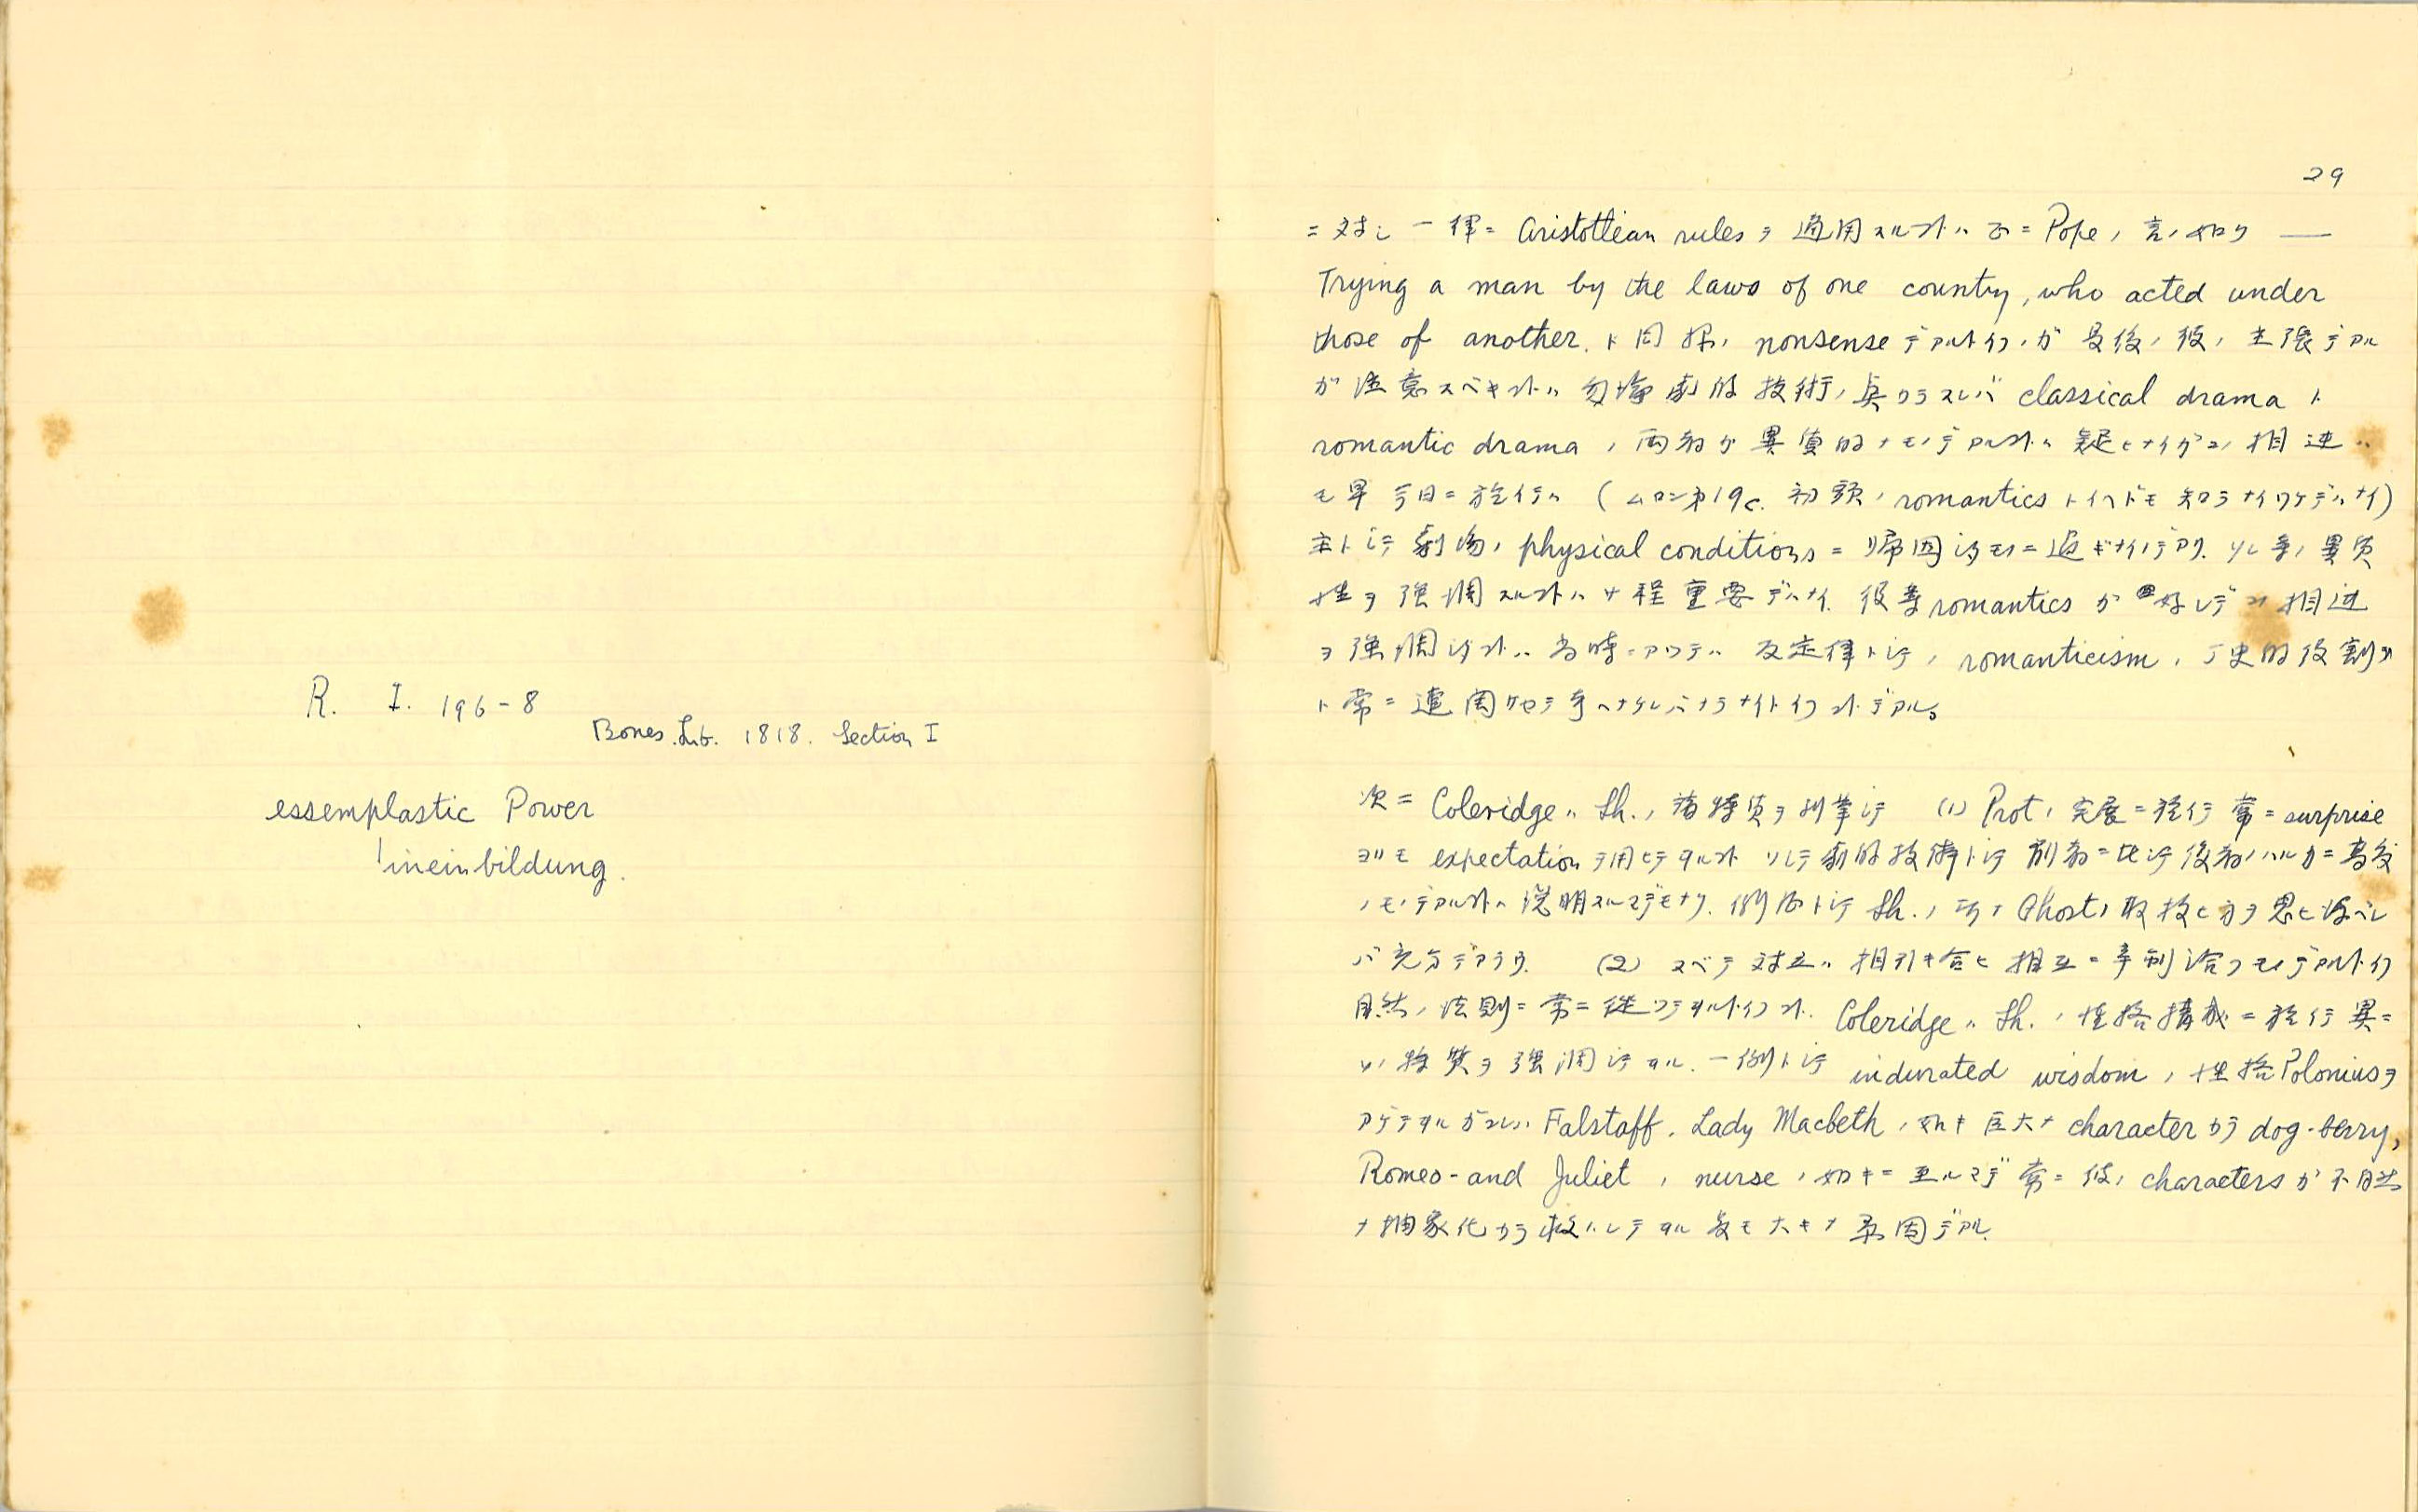 R. I. 196-8
Bones. Lit. 1818. Section I
essemplastic Power
ineinbildung.
29
ニ対シ一律ニ Aristotlean rules ヲ適用スルコトハ正ニ Pope ノ言ノ如ク ——
Trying a man by the laws of one country, who acted under
those of another. ト同様ノ nonsense デアルトイフノガ最後ノ彼ノ主張デアル
ガ注意スベキコトハ勿論劇的技術ノ点カラスレバ classical drama ト
romantic drama ノ両者ガ異質的ナモノデアルコトハ疑ヒナイガコノ相違ハ
今日ニ於イテハ (ムロン第19c. 初頭ノ romantics トイヘドモ知ラナイワケデハナイ)
主トシテ劇場ノ physical conditions ニ帰因シタモノニ過ギナイノデアリ. ソレ等ノ異質
性ヲ強調スルコトハサ程重要デハナイ. 彼等 romantics ガ好ンデコノ相違
ヲ強調シタコトハ当時ニアツテハ反定律トシテノ romanticism ノ史的役割
ト常ニ連関サセテ考ヘナケレバナラナイトイフコトデアル。
次ニ Coleridge ハ Sh. ノ諸特質ヲ列挙シテ (1) Plot ノ発展ニ於イテ常ニ surprise
ヨリモ expectation ヲ用ヒテヰルコト ソシテ劇的技術トシテ前者ニ比シテ後者ノハルカニ高級
ノモノデアルコトハ説明スルマデモナク. 例証トシテ Sh. ノ Ghost ノ取扱ヒ方ヲ思ヒ浮ベレ
バ充分デアラウ. (2) スベテ対立ハ相引キ合ヒ相互ニ牽制シ合フモノデアルトイフ
自然ノ法則ニ常ニ従ツテヰルトイフコト. Coleridge ハ Sh. ノ性格構成ニ於イテ異ニ
ノ特質ヲ強調シテヰル. 一例トシテ indurated wisdom ノ性格 Polonius ヲ
アゲテヰルガコレハ Falstaff, Lady Macbeth ノ如キ巨大ナ character カラ dog-berry,
Romeo-and Juliet ノ nurse ノ如キニ至ルマデ常ニ彼ノ characters ガ不自然
ナ抽象化カラ救ハレテヰル最モ大キナ原因デアル.